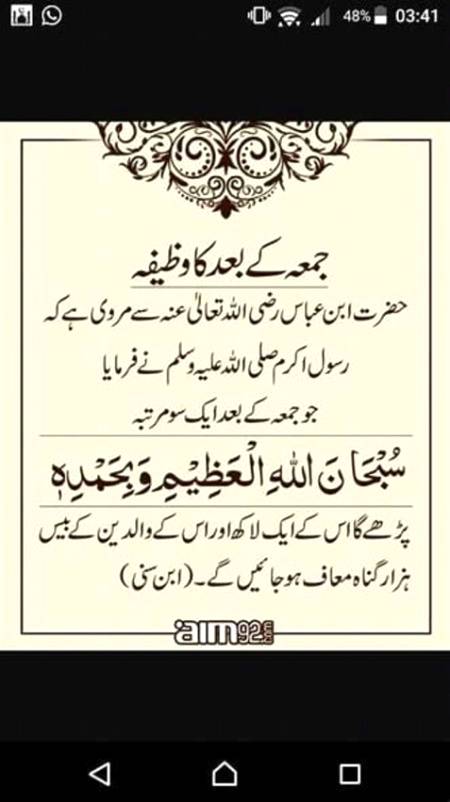 48% 03:41
جمعہ کے بعد کا وظیفہ
حضرت ابن عباس رضی اللہ تعالیٰ عنہ سے مروی ہے کہ
رسول اکرم صلی اللہ علیہ وسلم نے فرمایا
جو جمعہ کے بعد ایک سو مرتبہ
سُبْحَانَ اللهِ الْعَظِيْمِ وَبِحَمْدِهٖ
پڑھے گا اس کے ایک لاکھ اور اس کے والدین کے بیس
ہزار گناہ معاف ہو جائیں گے۔ (ابن سنی)
aim92